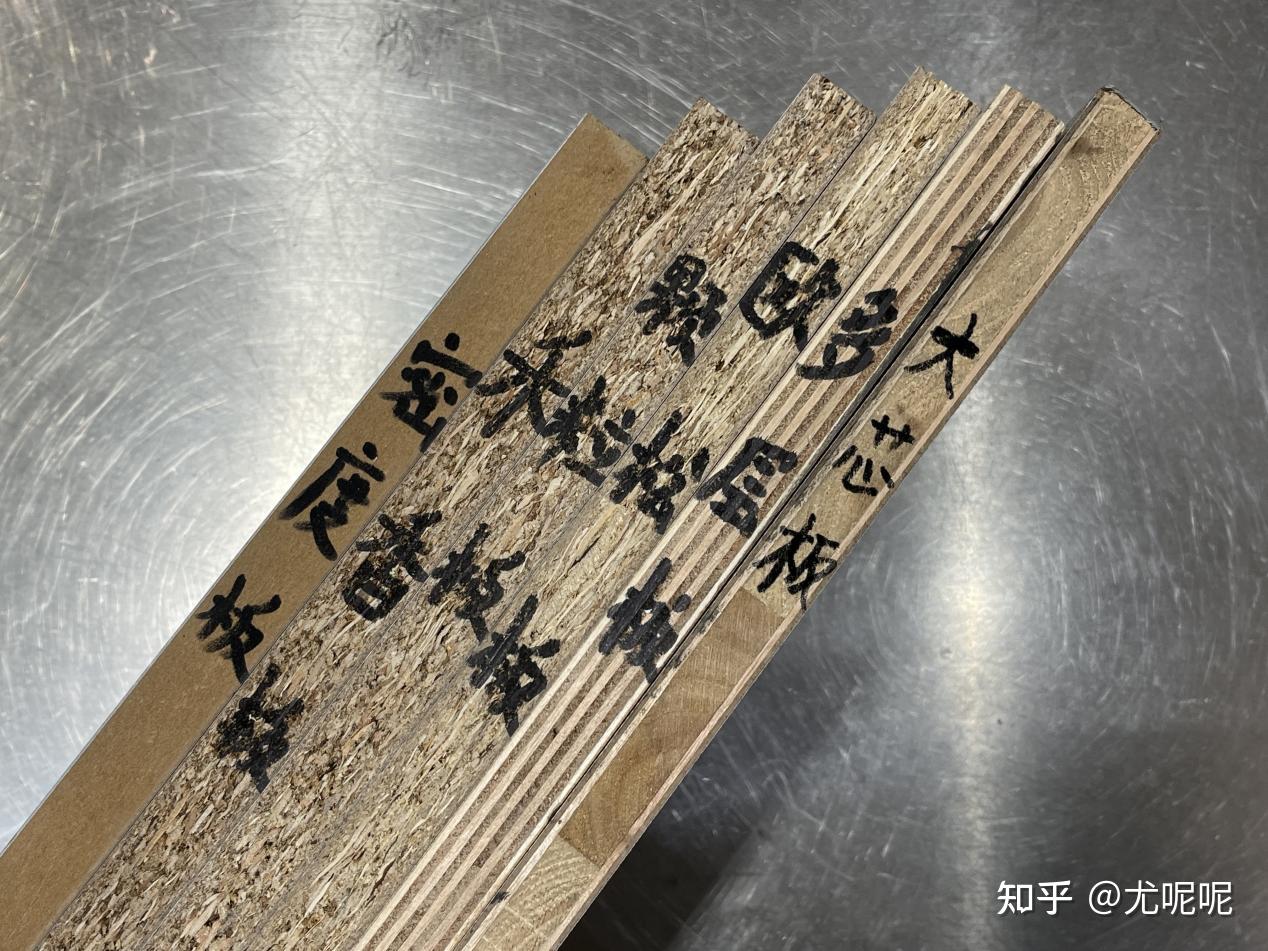 密度板
禾香板
颗粒板
欧松板
多层板
大芯板
知乎 @尤呢呢